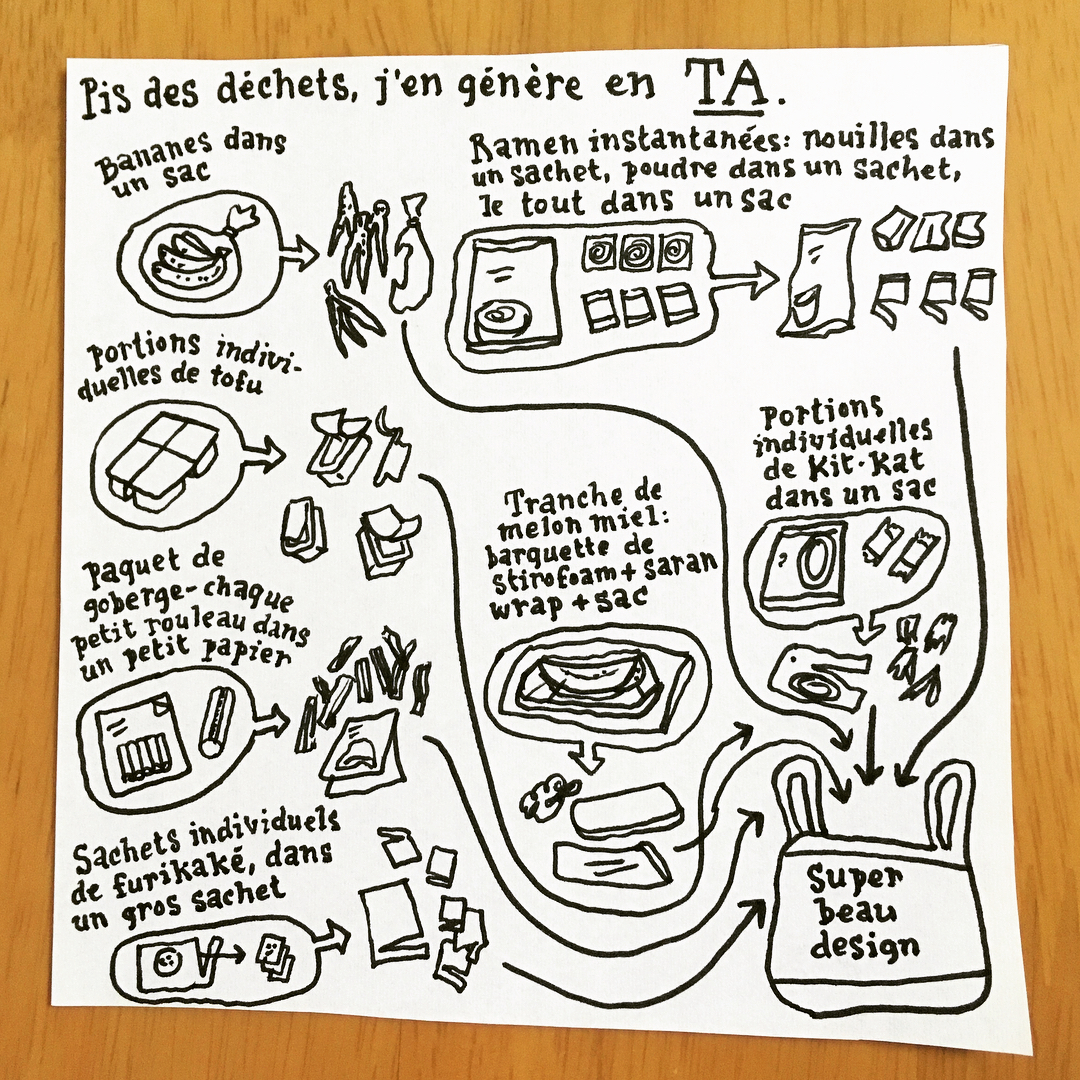 Pis des déchets, j'en génère en TA.
Bananes dans
un sac
Ramen instantanées: nouilles dans
un sachet, poudre dans un sachet,
le tout dans un sac
Portions indivi-
duelles de tofu
Portions
individuelles
de Kit-Kat
dans un sac
Tranche de
melon miel:
barquette de
stirofoam + saran
wrap + sac
Paquet de
goberge-chaque
petit rouleau dans
un petit papier
Sachets individuels
de furikaké, dans
un gros sachet
Super
beau
design